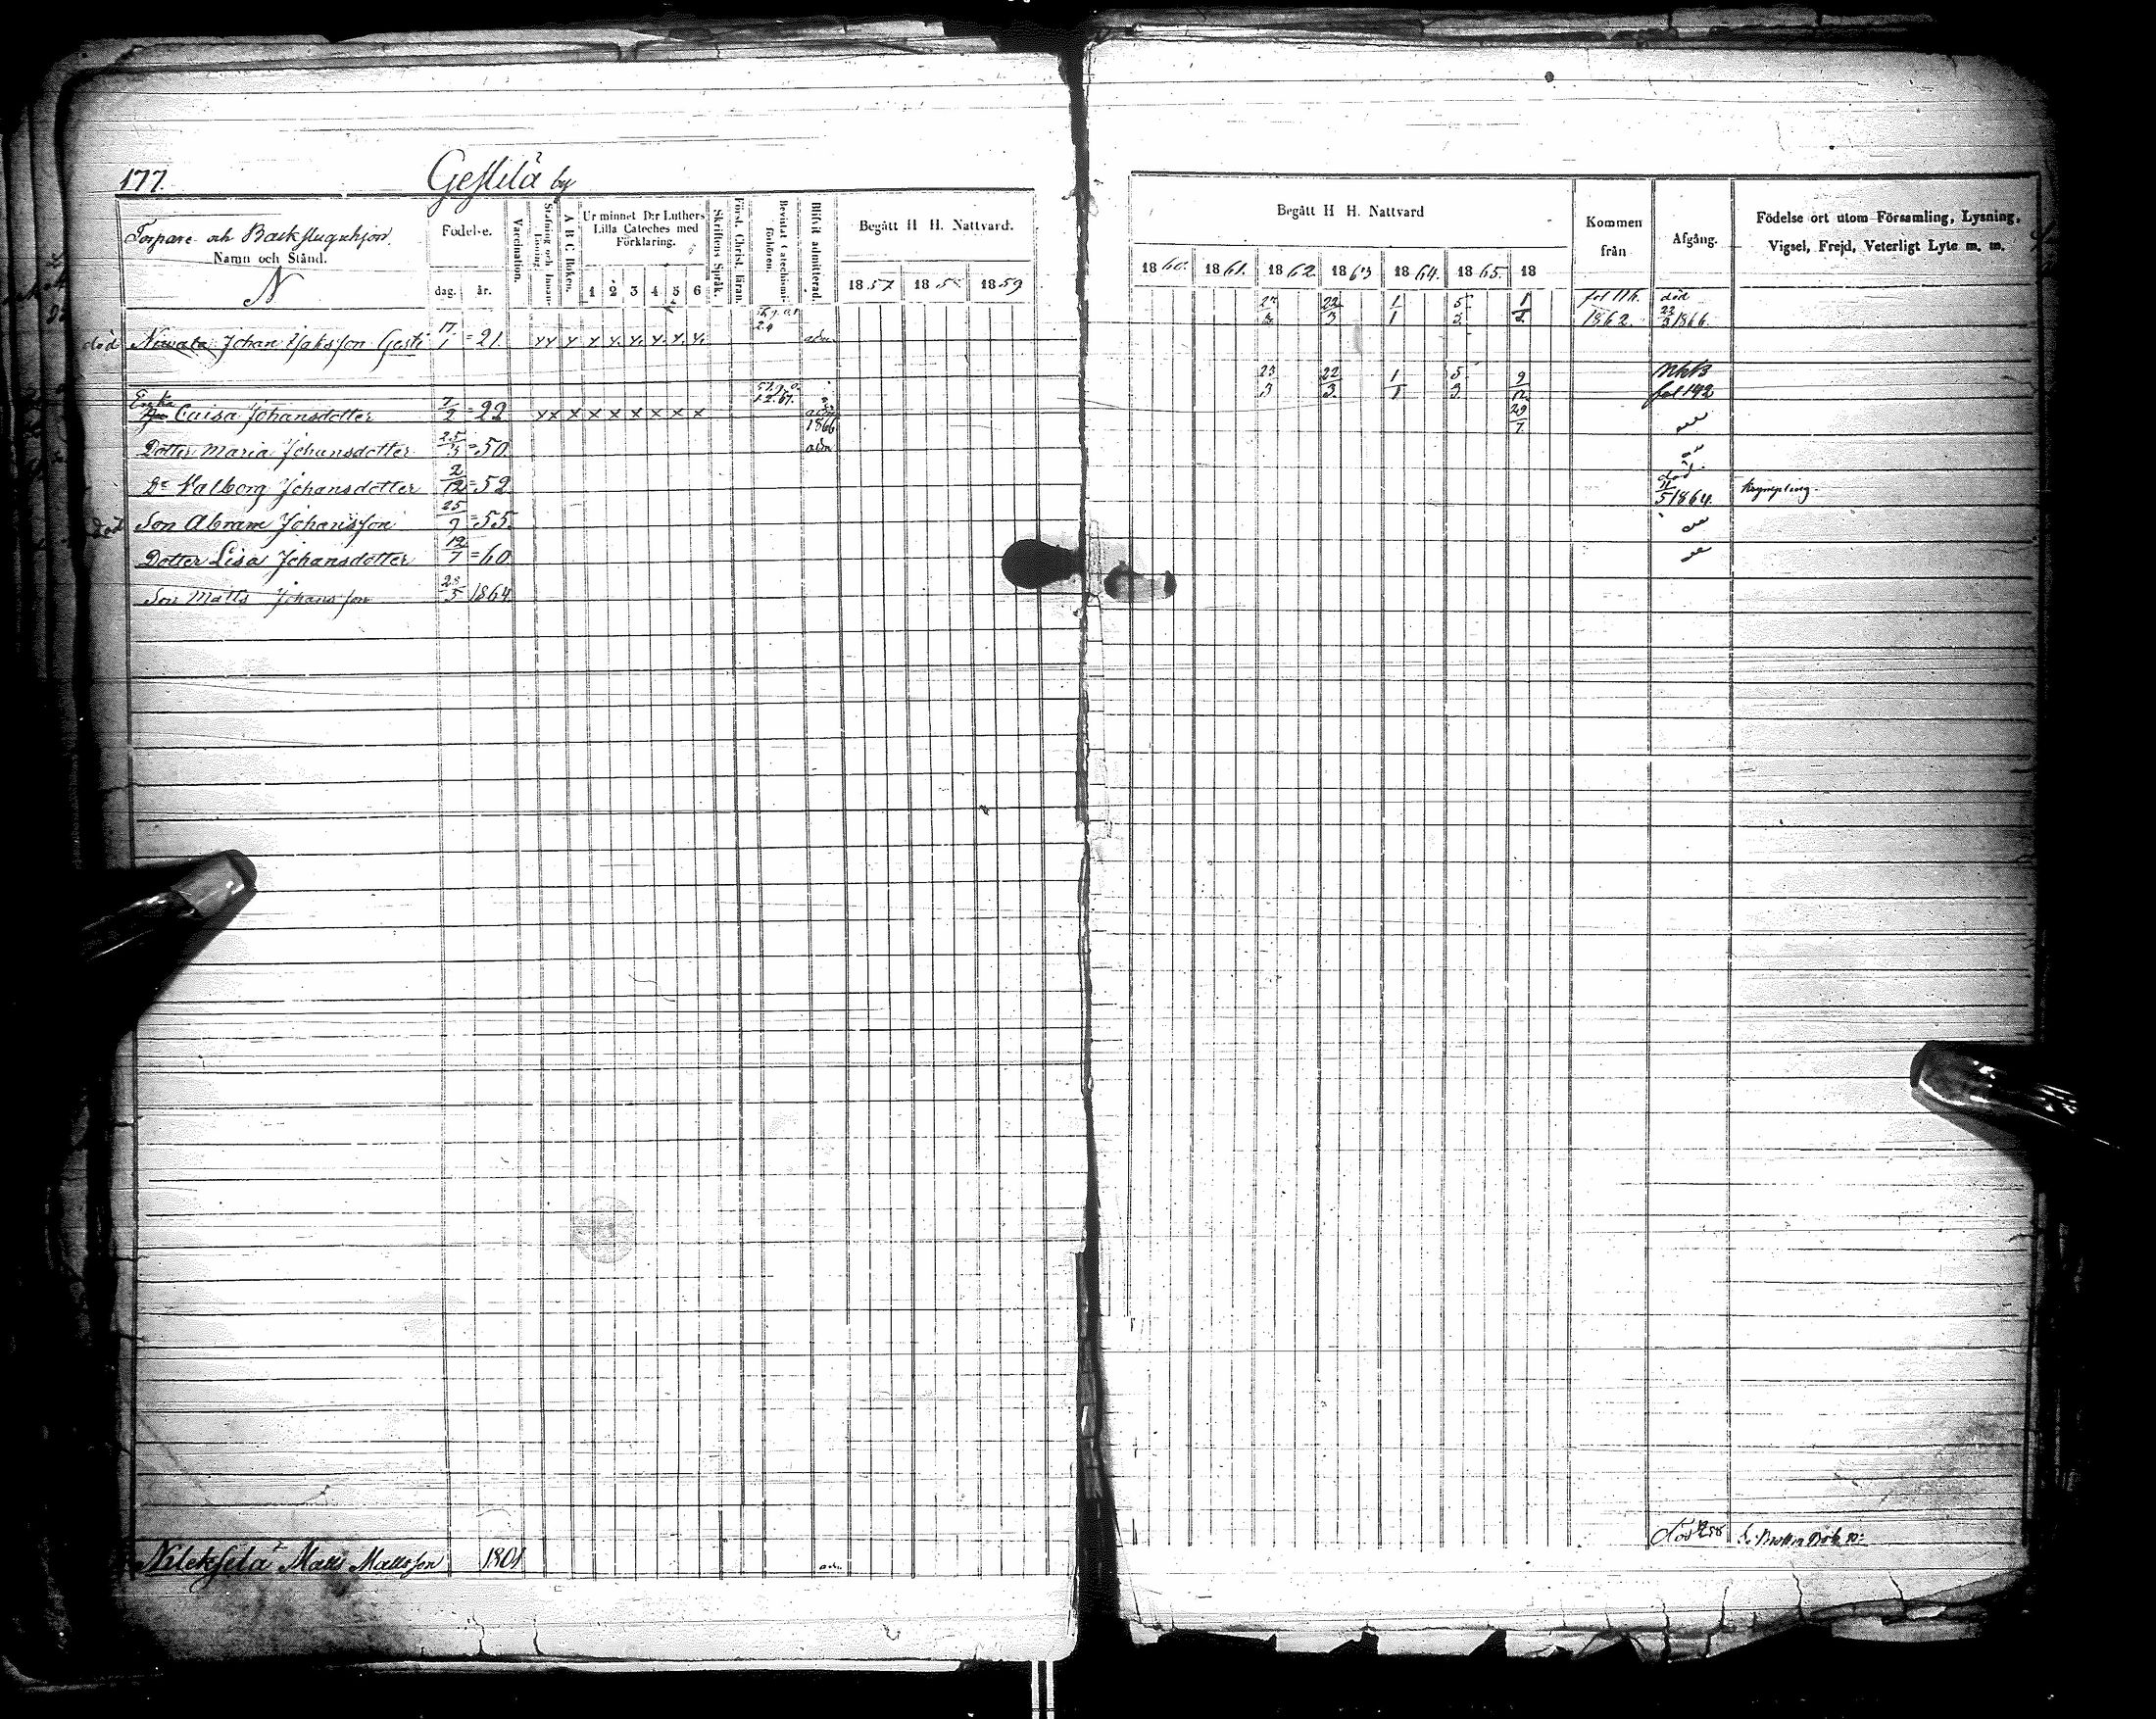 177. Gestilä by
Torpare och Backstuguhjon.
Namn och Stånd.
N
Födelse.
dag. år.
Vaccination.
Stafning och Innanläsning.
A B C Boken.
Ur minnet D:r Luthers Lilla Cateches med Förklaring.
1 2 3 4 5 6
Skriftens Språk.
Först. Chris. läran.
Bevistat Catechismiförhören.
Blifvit admitterad.
Begått H H. Nattvard.
1857. 1858. 1859
Begått H H. Nattvard
1860. 1861. 1862. 1863 1864. 1865. 18
Kommen från
Afgång.
Födelse ort utom Församling, Lysning,
Vigsel, Frejd, Veterligt Lyte m. m.
död Johan Isaksson Gesti 17/1 = 21. x x x x x. x. x. x. x. adm. 22/3 1/1 1862. död 23/3 1866.
Enka Caisa Johansdotter 7/2 = 22 x x x x x x x x x adm 23/3 22/3. 1/1 5/3. 9/12. fol 192
Dotter Maria Johansdotter 25/3 = 50. 1866 adm 29/7
Dr Valborg Johansdotter 2/12 = 52.
död Son Abram Johansson 25/9 = 55. död 11/5 1864.
Dotter Lisa Johansdotter 12/7 = 60
Son Matts Johansson 1864.
Matts Mattsson 1801